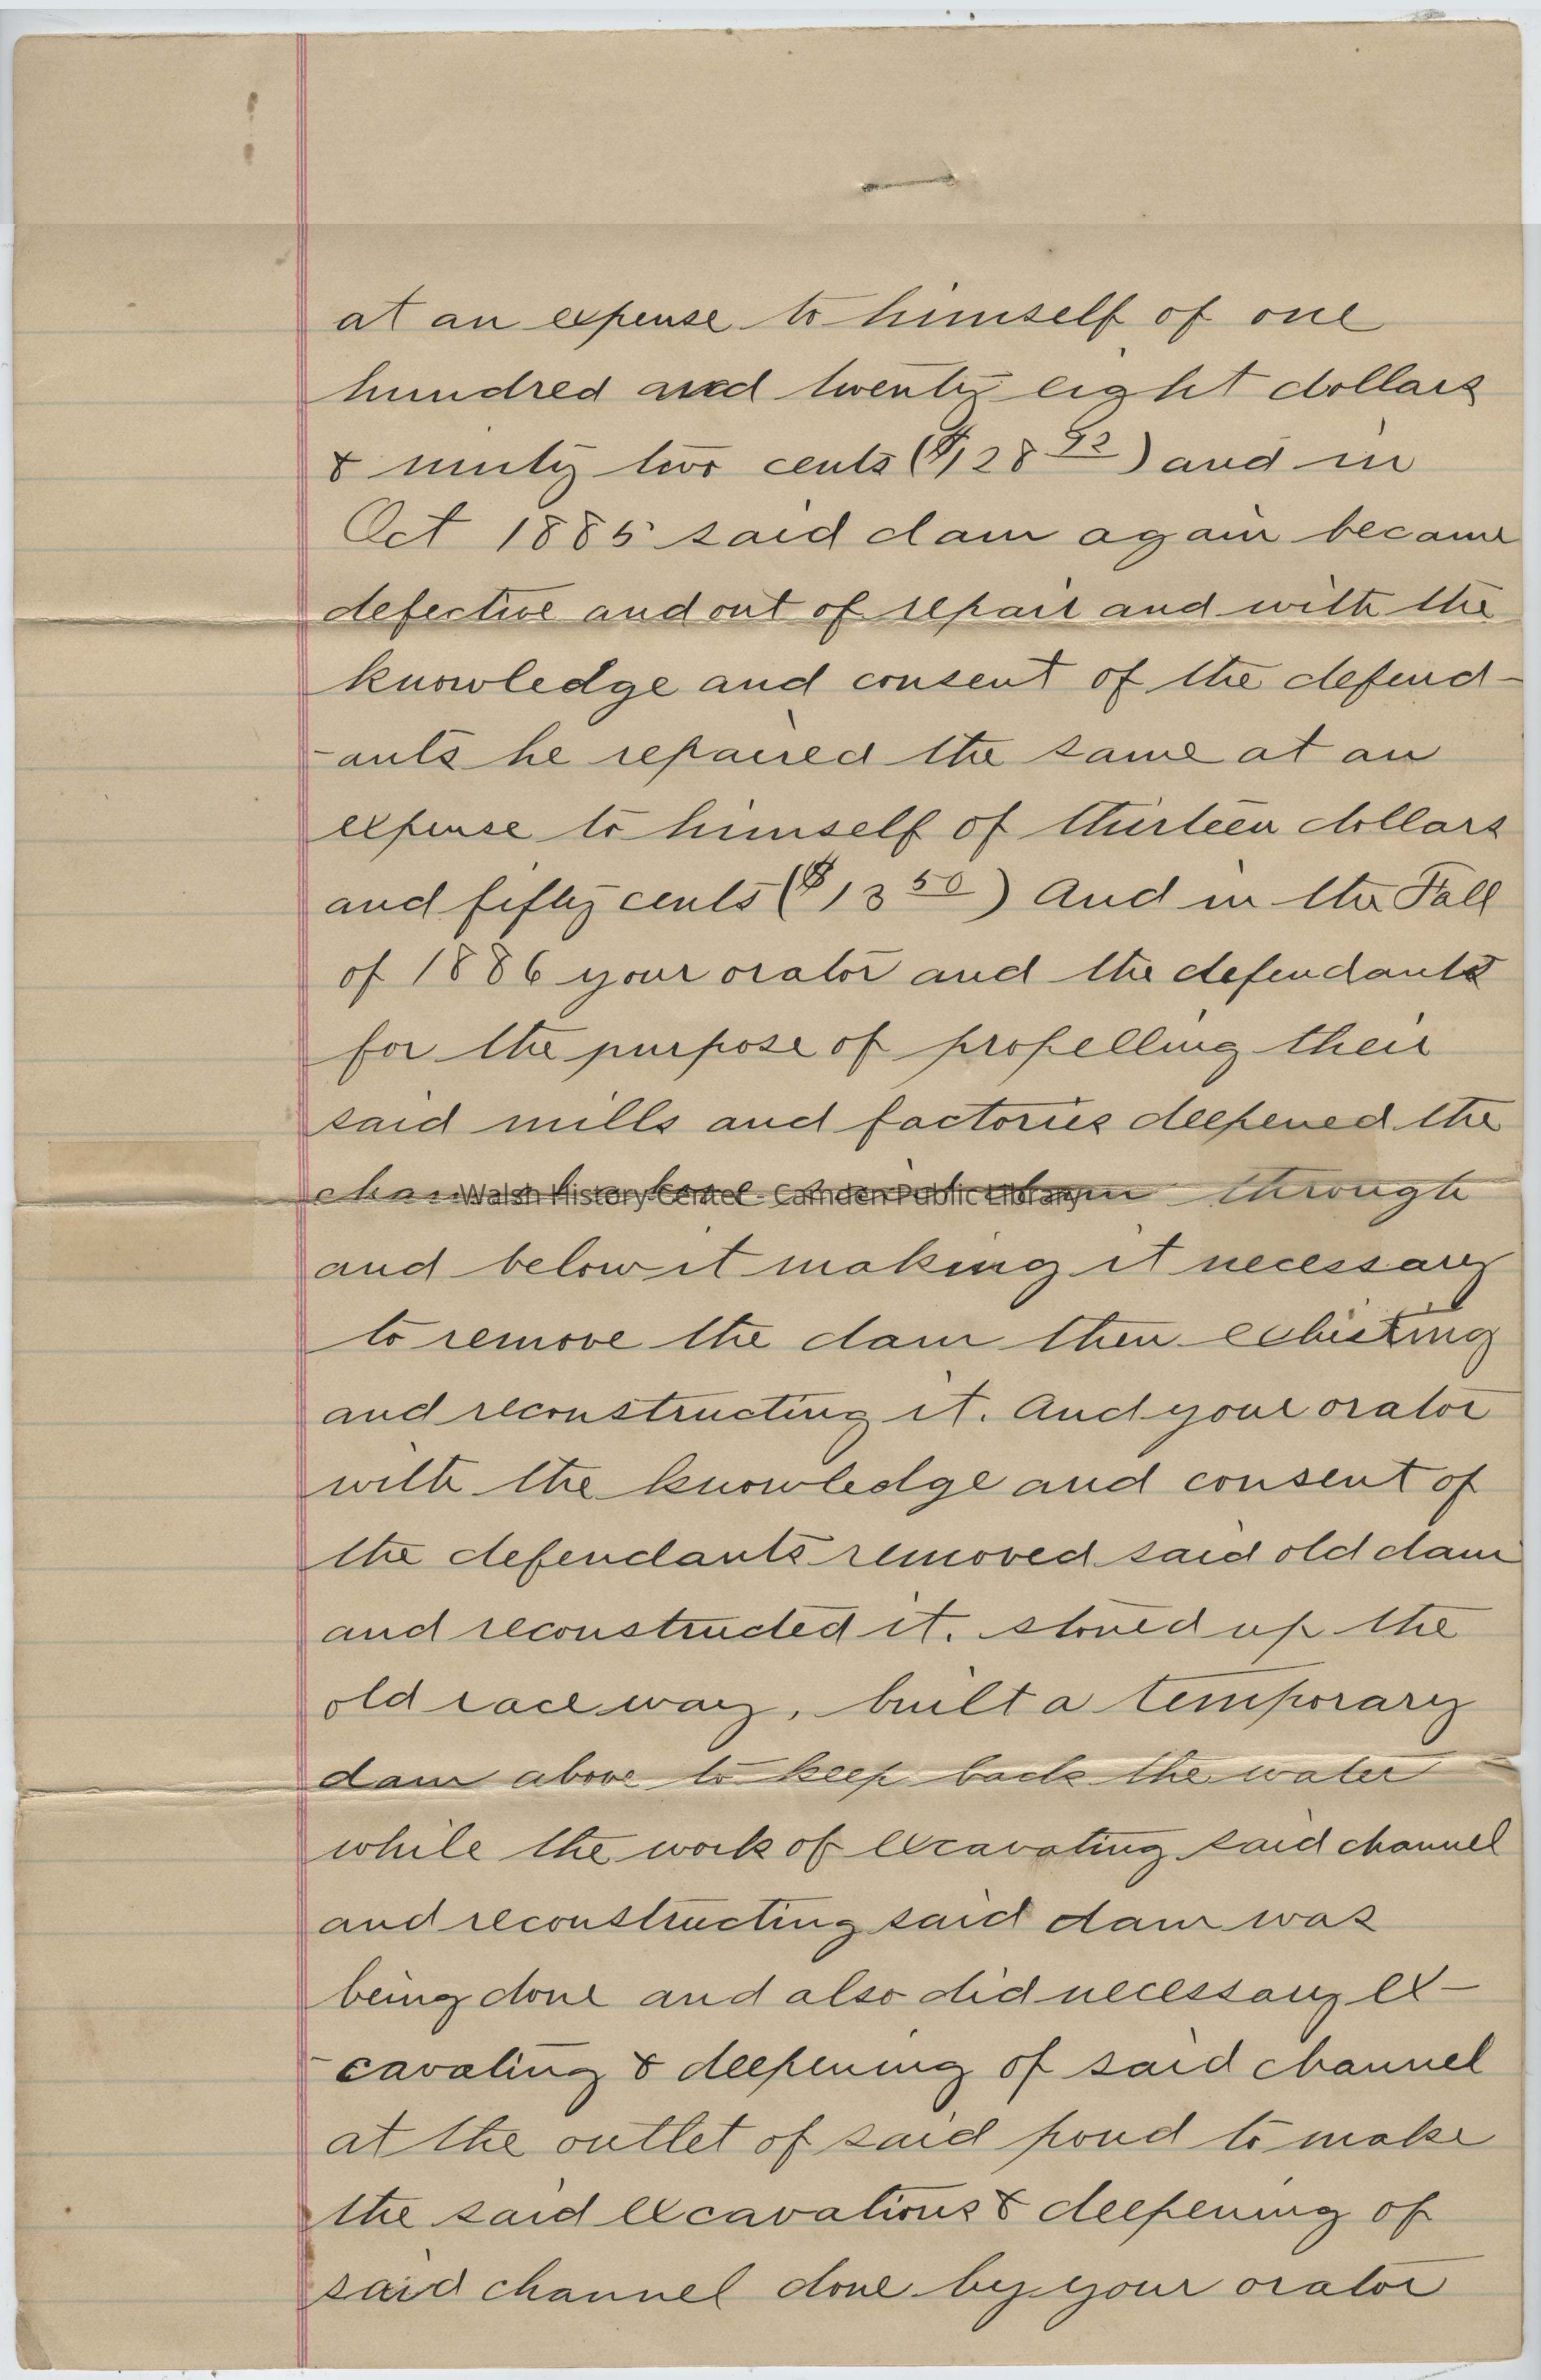 at an expense to himself of one
hundred and twenty eight dollars
& ninty two cents ($128 92) and in
Oct 1885 said dam again became
defective and out of repair and with the
knowledge and consent of the defend-
-ants he repaired the same at an
expense to himself of thirteen dollars
and fifty cents ($13 50) And in the Fall
of 1886 your orator and the defendants
for the purpose of propelling their
said mills and factories deepened the
channel above said dam through
Walsh History Center - Camden Public Library
and below it making it necessary
to remove the dam then exhisting
and reconstructing it. And your orator
with the knowledge and consent of
the defendants removed said old dam
and reconstructed it. stoned up the
old race way, built a temporary
dam above to keep back the water
while the work of excavating said channel
and reconstructing said dam was
being done and also did necessary ex-
-cavating & deepening of said channel
at the outlet of said pond to make
the said excavations & deepening of
said channel done by your orator